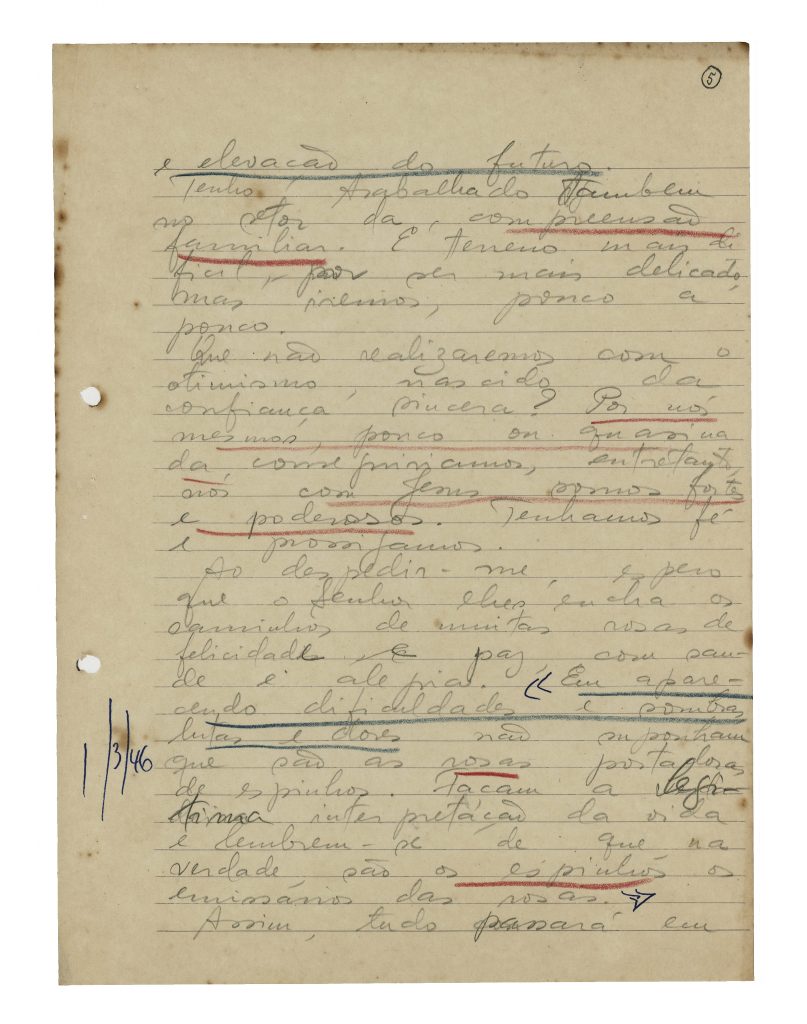 5
e elevação do futuro.
Tenho trabalhado também
no setor da compreensão
familiar. É terreno mais di
ficil, por ser mais delicado,
mas iremos, pouco a
pouco.
Que não realizaremos com o
otimismo, nascido da
confiança sincera? Por nós
mesmos, pouco ou quasi na
da conseguiriamos, entretanto,
nós com Jesus somos fortes
e poderosos. Tenhamos fé
e prossigamos.
Ao despedir-me, espero
que o Senhor lhes encha os
caminhos de muitas rosas de
felicidade e paz, com sau-
de e alegria. « Em apare-
cendo dificuldades e sombras
lutas e dores não suponham
que são as rosas portadoras
de espinhos. Façam a legi-
1/3/46
tima interpretação da vida
e lembrem-se de que na
verdade são os espinhos os
emissários das rosas. »
Assim, tudo passará em